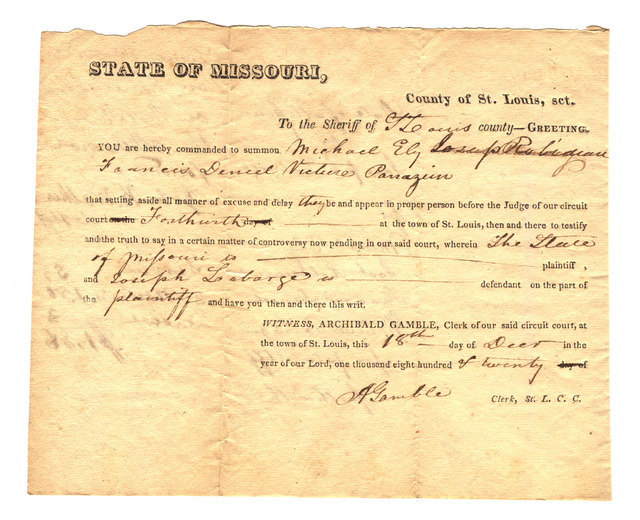 STATE OF MISSOURI,
County of St. Louis, sct.
To the Sheriff of St Louis county—GREETING.
YOU are hereby commanded to summon Michael Ely Joseph Robideau
Francis Deniel Victore Panazien
that setting aside all manner of excuse and delay they be and appear in proper person before the Judge of our circuit
court on the Forthwith day of at the town of St. Louis, then and there to testify
and the truth to say in a certain matter of controversy now pending in our said court, wherein The State
of Missouri is plaintiff ,
and Joseph Labarge is defendant on the part of
the plaintiff and have you then and there this writ.
WITNESS, ARCHIBALD GAMBLE, Clerk of our said circuit court, at
the town of St. Louis, this 18th day of Decr in the
year of our Lord, one thousand eight hundred & twenty day of
A Gamble Clerk, St. L. C. C.